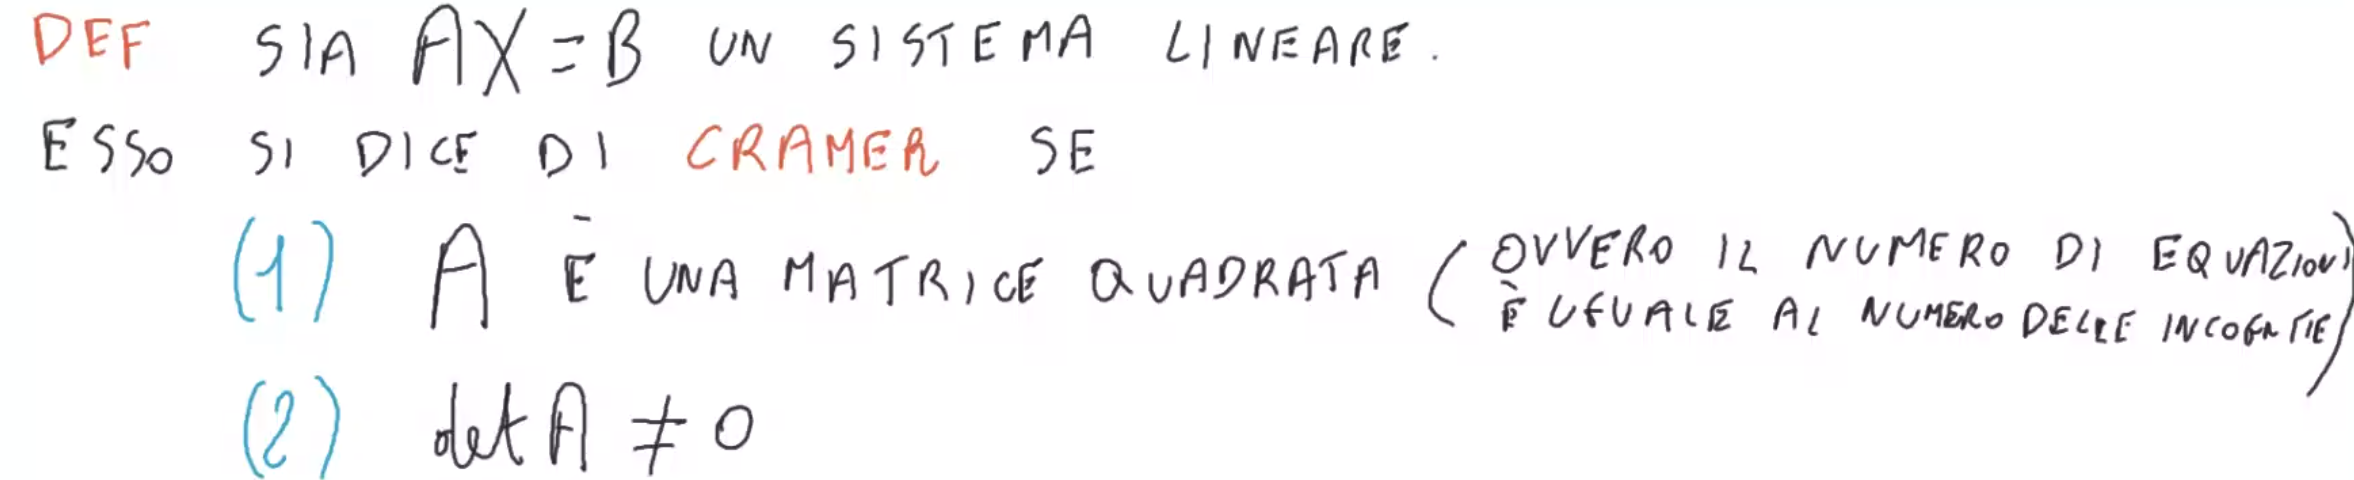 DEF SIA AX = B UN SISTEMA LINEARE.
ESSO SI DICE DI CRAMER SE
(1) A È UNA MATRICE QUADRATA (OVVERO IL NUMERO DI EQUAZIONI
È UGUALE AL NUMERO DELLE INCOGNITE)
(2) det A ≠ 0